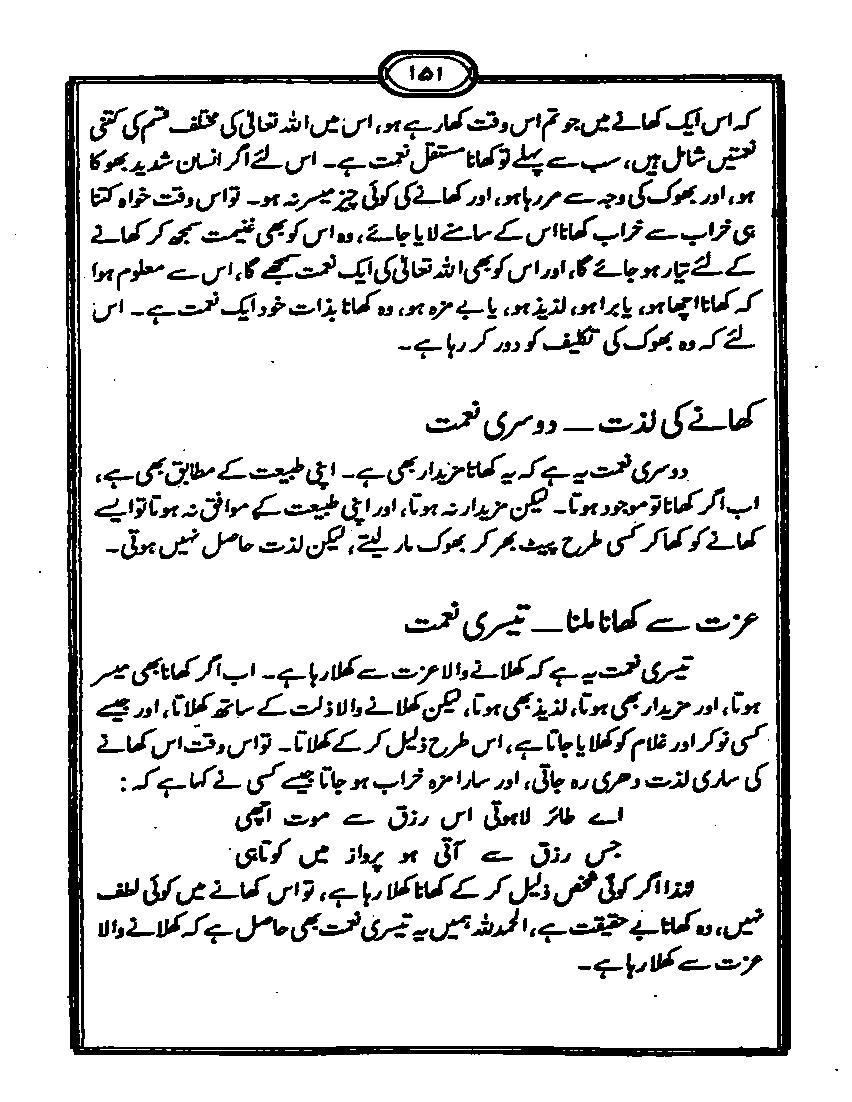 ۱۵۱
کہ اس ایک کھانے میں جو تم اس وقت کھا رہے ہو، اس میں اللہ تعالیٰ کی مختلف قسم کی کتنی
نعمتیں شامل ہیں، سب سے پہلے تو کھانا مستقل نعمت ہے۔ اس لئے اگر انسان شدید بھوکا
ہو، اور بھوک کی وجہ سے مر رہا ہو، اور کھانے کی کوئی چیز میسر نہ ہو۔ تو اس وقت خواہ کتنا
ہی خراب سے خراب کھانا اس کے سامنے لایا جائے، وہ اس کو بھی غنیمت سمجھ کر کھانے
کے لئے تیار ہو جائے گا، اور اس کو بھی اللہ تعالیٰ کی ایک نعمت سمجھے گا، اس سے معلوم ہوا
کہ کھانا اچھا ہو، یا برا ہو، لذیذ ہو، یا بے مزہ ہو، وہ کھانا بذات خود ایک نعمت ہے۔ اس
لئے کہ وہ بھوک کی تکلیف کو دور کر رہا ہے۔
کھانے کی لذت — دوسری نعمت
دوسری نعمت یہ ہے کہ یہ کھانا مزیدار بھی ہے۔ اپنی طبیعت کے مطابق بھی ہے،
اب اگر کھانا تو موجود ہوتا۔ لیکن مزیدار نہ ہوتا، اور اپنی طبیعت کے موافق نہ ہوتا تو ایسے
کھانے کو کھا کر کسی طرح پیٹ بھر کر بھوک مار لیتے، لیکن لذت حاصل نہیں ہوتی۔
عزت سے کھانا ملنا — تیسری نعمت
تیسری نعمت یہ ہے کہ کھلانے والا عزت سے کھلا رہا ہے۔ اب اگر کھانا بھی میسر
ہوتا، اور مزیدار بھی ہوتا، لذیذ بھی ہوتا، لیکن کھلانے والا ذلت کے ساتھ کھلاتا، اور جیسے
کسی نوکر اور غلام کو کھلایا جاتا ہے، اس طرح ذلیل کر کے کھلاتا۔ تو اس وقت اس کھانے
کی ساری لذت دھری رہ جاتی، اور سارا مزہ خراب ہو جاتا جیسے کسی نے کہا ہے کہ:
اے طائر لاہوتی اس رزق سے موت اچھی
جس رزق سے آتی ہو پرواز میں کوتاہی
لہٰذا اگر کوئی شخص ذلیل کر کے کھانا کھلا رہا ہے، تو اس کھانے میں کوئی لطف
نہیں، وہ کھانا بے حقیقت ہے، الحمد للہ ہمیں یہ تیسری نعمت بھی حاصل ہے کہ کھلانے والا
عزت سے کھلا رہا ہے۔